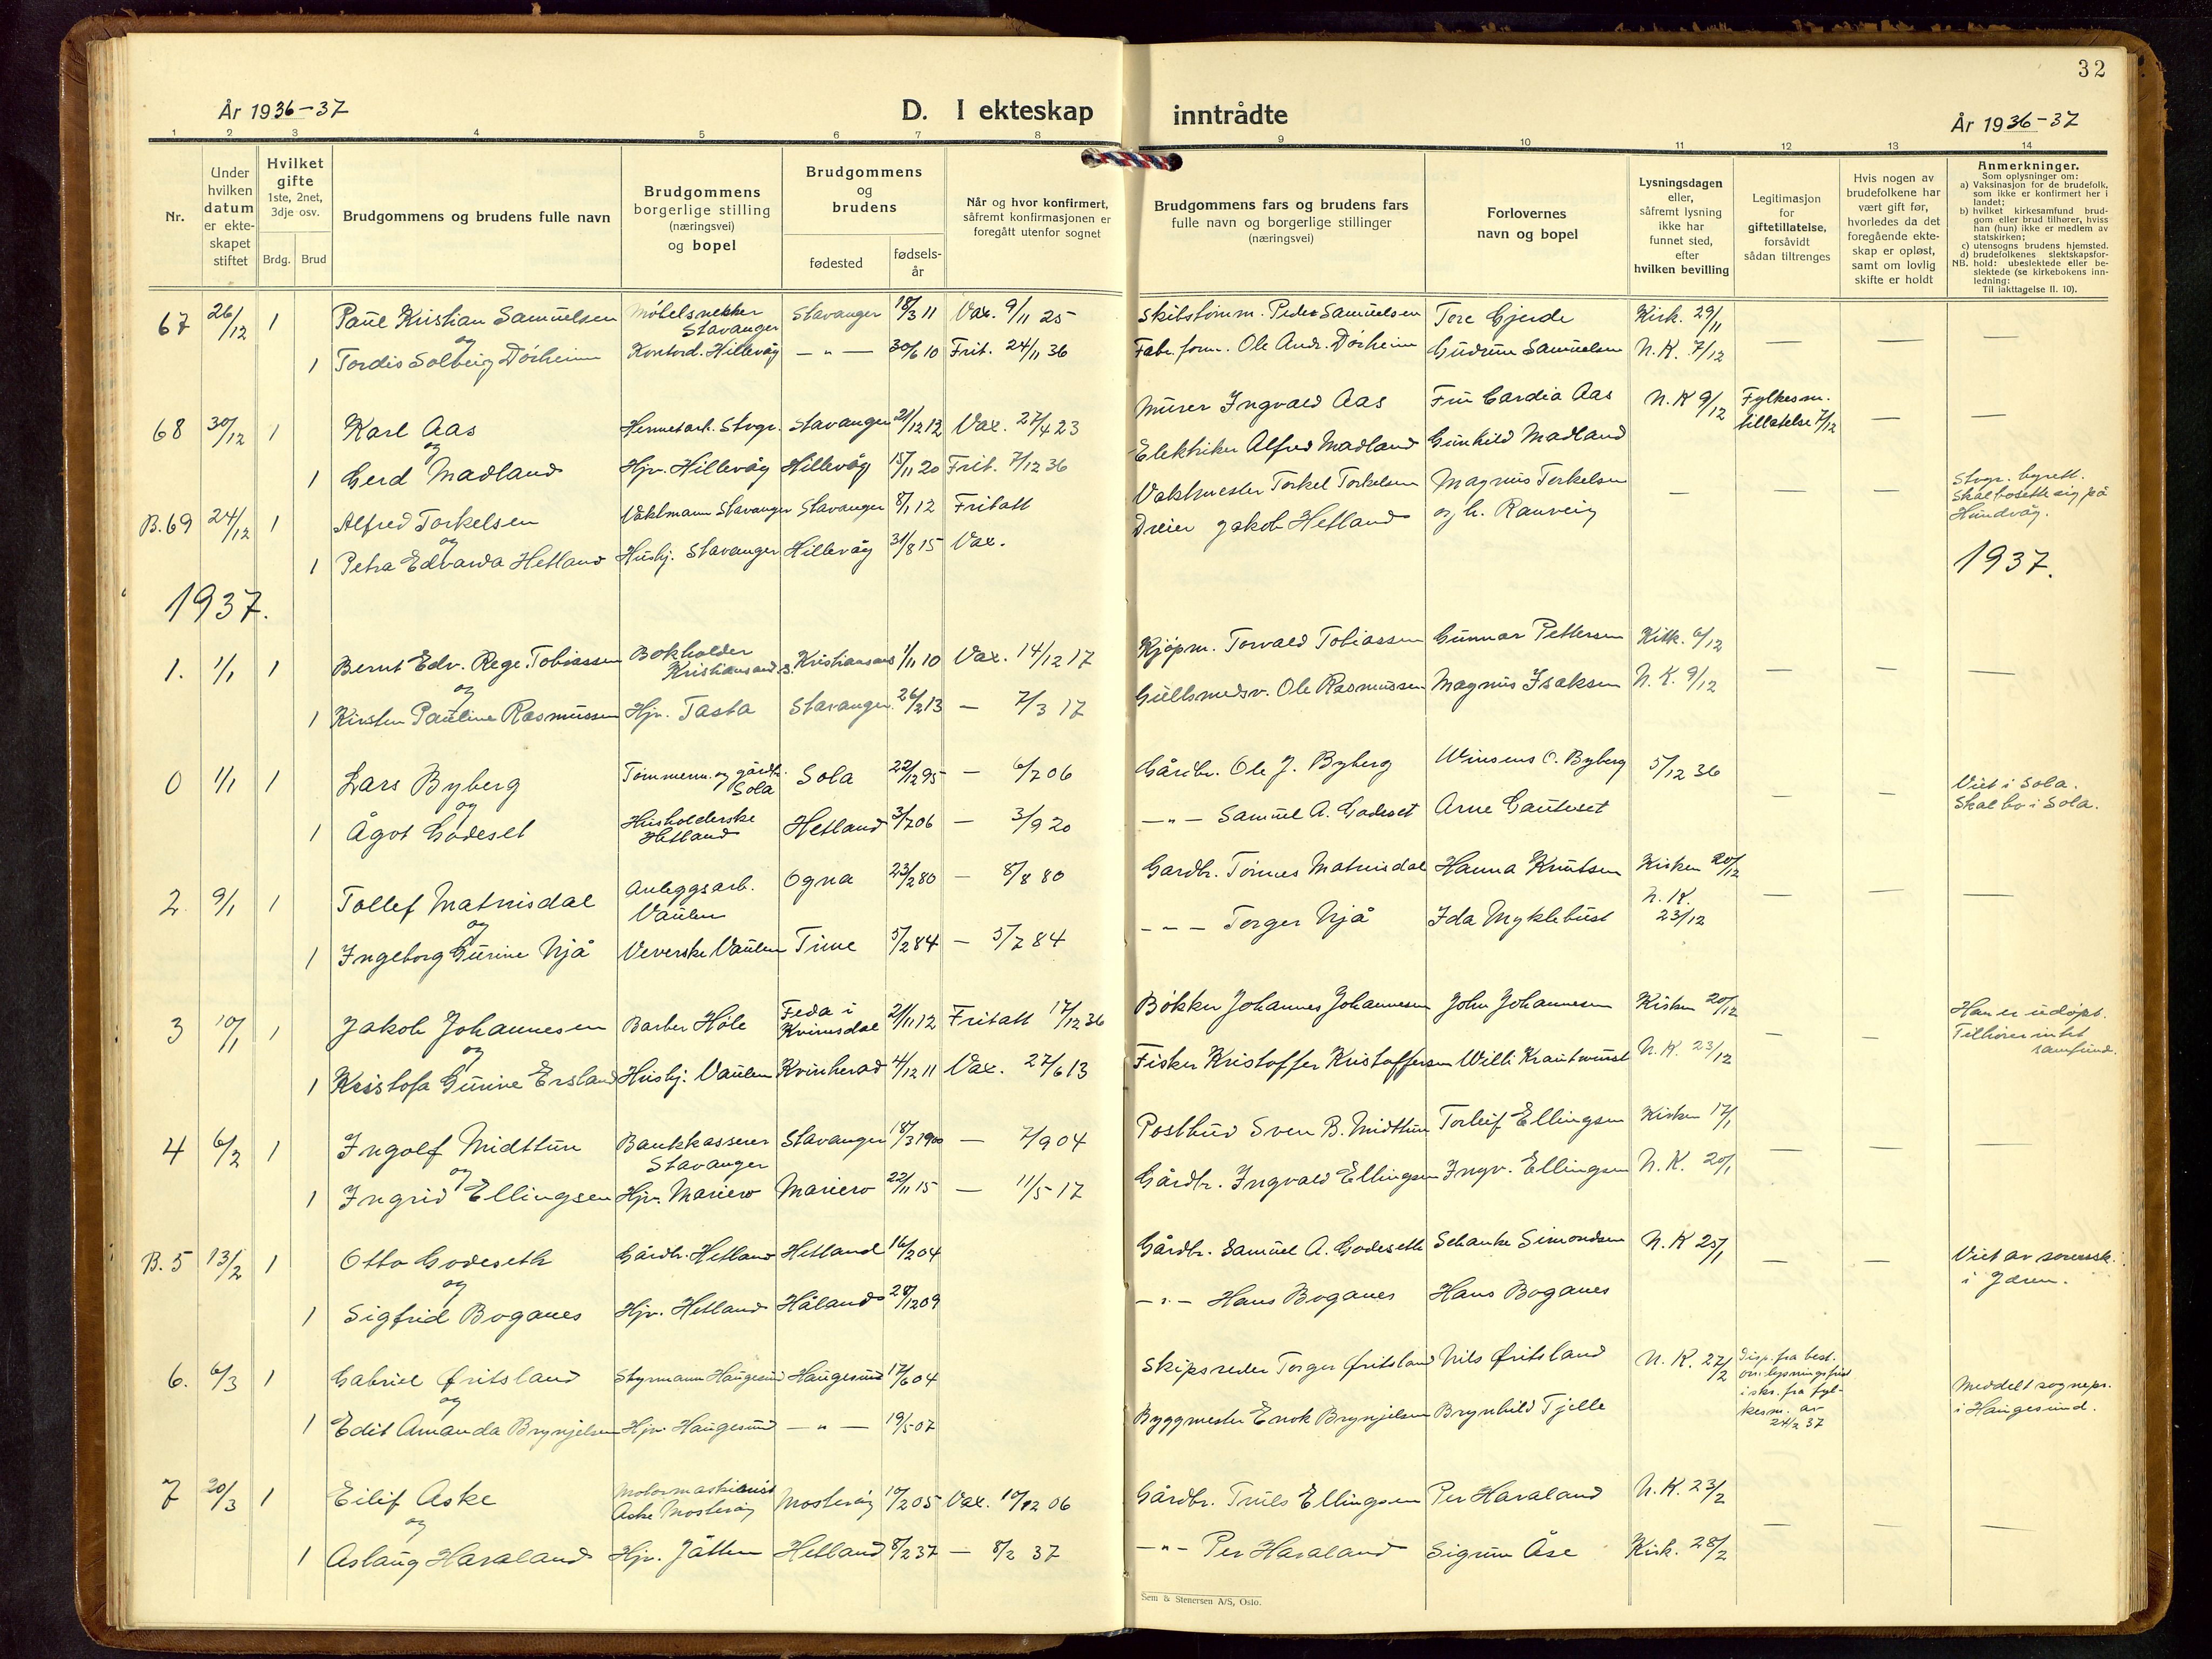 32
År 1936-37
D. I ekteskap inntrådte
År 1936-37
1 2 3 4 5 6 7 8 9 10 11 12 13 14
Nr.
Under hvilken datum er ekteskapet stiftet
Hvilket gifte
1ste, 2net, 3dje osv.
Brdg. Brud
Brudgommens og brudens fulle navn
Brudgommens borgerlige stilling (næringsvei) og bopel
Brudgommens og brudens
fødested
fødselsår
Når og hvor konfirmert, såfremt konfirmasjonen er foregått utenfor sognet
Brudgommens fars og brudens fars fulle navn og borgerlige stillinger (næringsvei)
Forlovernes navn og bopel
Lysningsdagen eller, såfremt lysning ikke har funnet sted, efter hvilken bevilling
Legitimasjon for giftetillatelse, forsåvidt sådan tiltrenges
Hvis nogen av brudefolkene har vært gift før, hvorledes da det foregående ekteskap er opløst, samt om lovlig skifte er holdt
Anmerkninger.
Som oplysninger om:
a) Vaksinasjon for de brudefolk, som ikke er konfirmert her i landet;
b) hvilket kirkesamfund brudgom eller brud tilhører, hviss han (hun) ikke er medlem av statskirken;
c) utensogns brudens hjemsted.
d) brudefolkenes slektskapsforhold: ubeslektede eller beslektede (se kirkebokens innledning:
NB.
Til iakttagelse II. 10).
67 26/12 1 Paul Kristian Samuelsen Møbelsnekker Stavanger Stavanger 18/3 11 Vax. 9/11 25 Skibstømm. Peder Samuelsen Tore Gjerde Kirk. 29/11 — — —
og
1 Tordis Solbeig Dørheim Kontord. Hillevåg — " — 30/6 10 Frit. 24/11 36 Fabr. form. Ole Andr. Dørheim Gudrun Samuelsen N.K. 7/12
68 30/12 1 Karl Aas Hermetarb. Stvgr. Stavanger 21/12 12 Vax. 27/4 23 Murer Ingvald Aas Fru Cardia Aas N.K 9/12 Fylkesm. tillatelse 7/12 — —
og
1 Gerd Madland Hjv. Hillevåg Hillevåg 15/11 20 Frit. 7/12 36 Elektriker Alfred Madland Gunhild Madland
B.69 24/12 1 Alfred Torkelsen Vaktmann Stavanger Stavanger 8/1 12 Fritatt Vaktmester Torkel Torkelsen Magnus Torkelsen — — — Stvgr. byrett. Skal bosette sig på Hundvåg.
og
1 Petra Edvarda Hetland Husbj. Stavanger Hillevåg 31/8 15 Vax. Dreier Jakob Hetland og h. Ranveig
1937. 1937.
1. 1/1 1 Bernt Edv. Rege Tobiassen Bokholder Kristiansand S. Kristiansand 1/11 10 Vax. 14/12 17 Kjøpm. Torvald Tobiassen Gunnar Pettersen Kirk. 6/12 — — —
og
1 Kirsten Pauline Rasmussen Hjv. Tasta Stavanger 26/2 13 — 7/3 17 Gullsmedsv. Ole Rasmussen Magnus Isaksen N.K. 9/12
0 1/1 1 Lars Byberg Tømmerm. og gårdb. Sola Sola 22/12 95 — 6/7 06 Gårdbr. Ole J. Byberg Winsens O. Byberg 5/12 36 — — Viet i Sola. Skal bo i Sola.
og
1 Ågot Godeset Husholderske Hetland Hetland 3/7 06 — 3/9 20 — " — Samuel A. Godeset Arne Gauteset
2. 9/1 1 Tollef Matnisdal Anleggsarb. Vaulen Ogna 23/2 80 — 8/8 80 Gardbr. Tønnes Matnisdal Hanna Knutsen Kirken 20/12 — — —
og
1 Ingeborg Gurine Njå Veverske Vaulen Time 5/2 84 — 5/7 84 — " — Torger Njå Ida Myklebust N.K. 23/12
3 10/1 1 Jakob Johannesen Barber Høle Feda i Kvinesdal 21/11 12 Fritatt 17/12 36 Bøkker Johannes Johannesen John Johannesen Kirken 20/12 — — Han er udøpt. Tilhører intet samfund.
og
1 Kristofa Gurine Ersland Husbj. Vaulen Kvinherad 4/12 11 Vax. 27/6 13 Fisker Kristoffer Kristoffersen Willi Krautwurst N.K. 23/12
4 6/2 1 Ingolf Midttun Bankkasserer Stavanger Stavanger 18/3 1900 — 7/9 04 Postbud Sven B. Midttun Torleif Ellingsen Kirken 17/1 — — —
og
1 Ingrid Ellingsen Hjv. Mariero Mariero 22/11 15 — 11/5 17 Gårdbr. Ingvald Ellingsen Ingv. Ellingsen N.K. 20/1
B. 5 13/2 1 Otto Godeseth Gårdbr. Hetland Hetland 16/2 04 Gårdbr. Samuel A. Godeseth Schanke Simondsen N.K 25/1 — — Viet av sorenssk. i Jæren.
og
1 Sigfrid Boganes Hjv. Hetland Håland 28/12 09 — " — Hans Boganes Hans Boganes
6. 6/3 1 Gabriel Øritsland Styrmann Haugesund Haugesund 17/6 04 Skipsreder Torger Øritsland Nils Øritsland N.K. 27/2 Disp. fra best. om lysningsfrist i skr. fra fylkesm. av 24/2 37 Meddelt sognepr. i Haugesund.
og
1 Edit Amanda Brynjelsen Hjv. Haugesund — " — 19/5 07 Byggmester Enok Brynjelsen Brynhild Tjelle
7 20/3 1 Eilif Aske Motormaskinist Aske Mosterøy Mosterøy 10/2 05 Vax. 10/12 06 Gårdbr. Truls Ellingsen Per Haraland N.K. 23/2 — — —
og
1 Aslaug Haraland Hjv. Jåtten Hetland 8/2 37 — 8/2 37 — " — Per Haraland Sigrun Åse Kirk. 28/2
Sem & Stenersen A/S, Oslo.